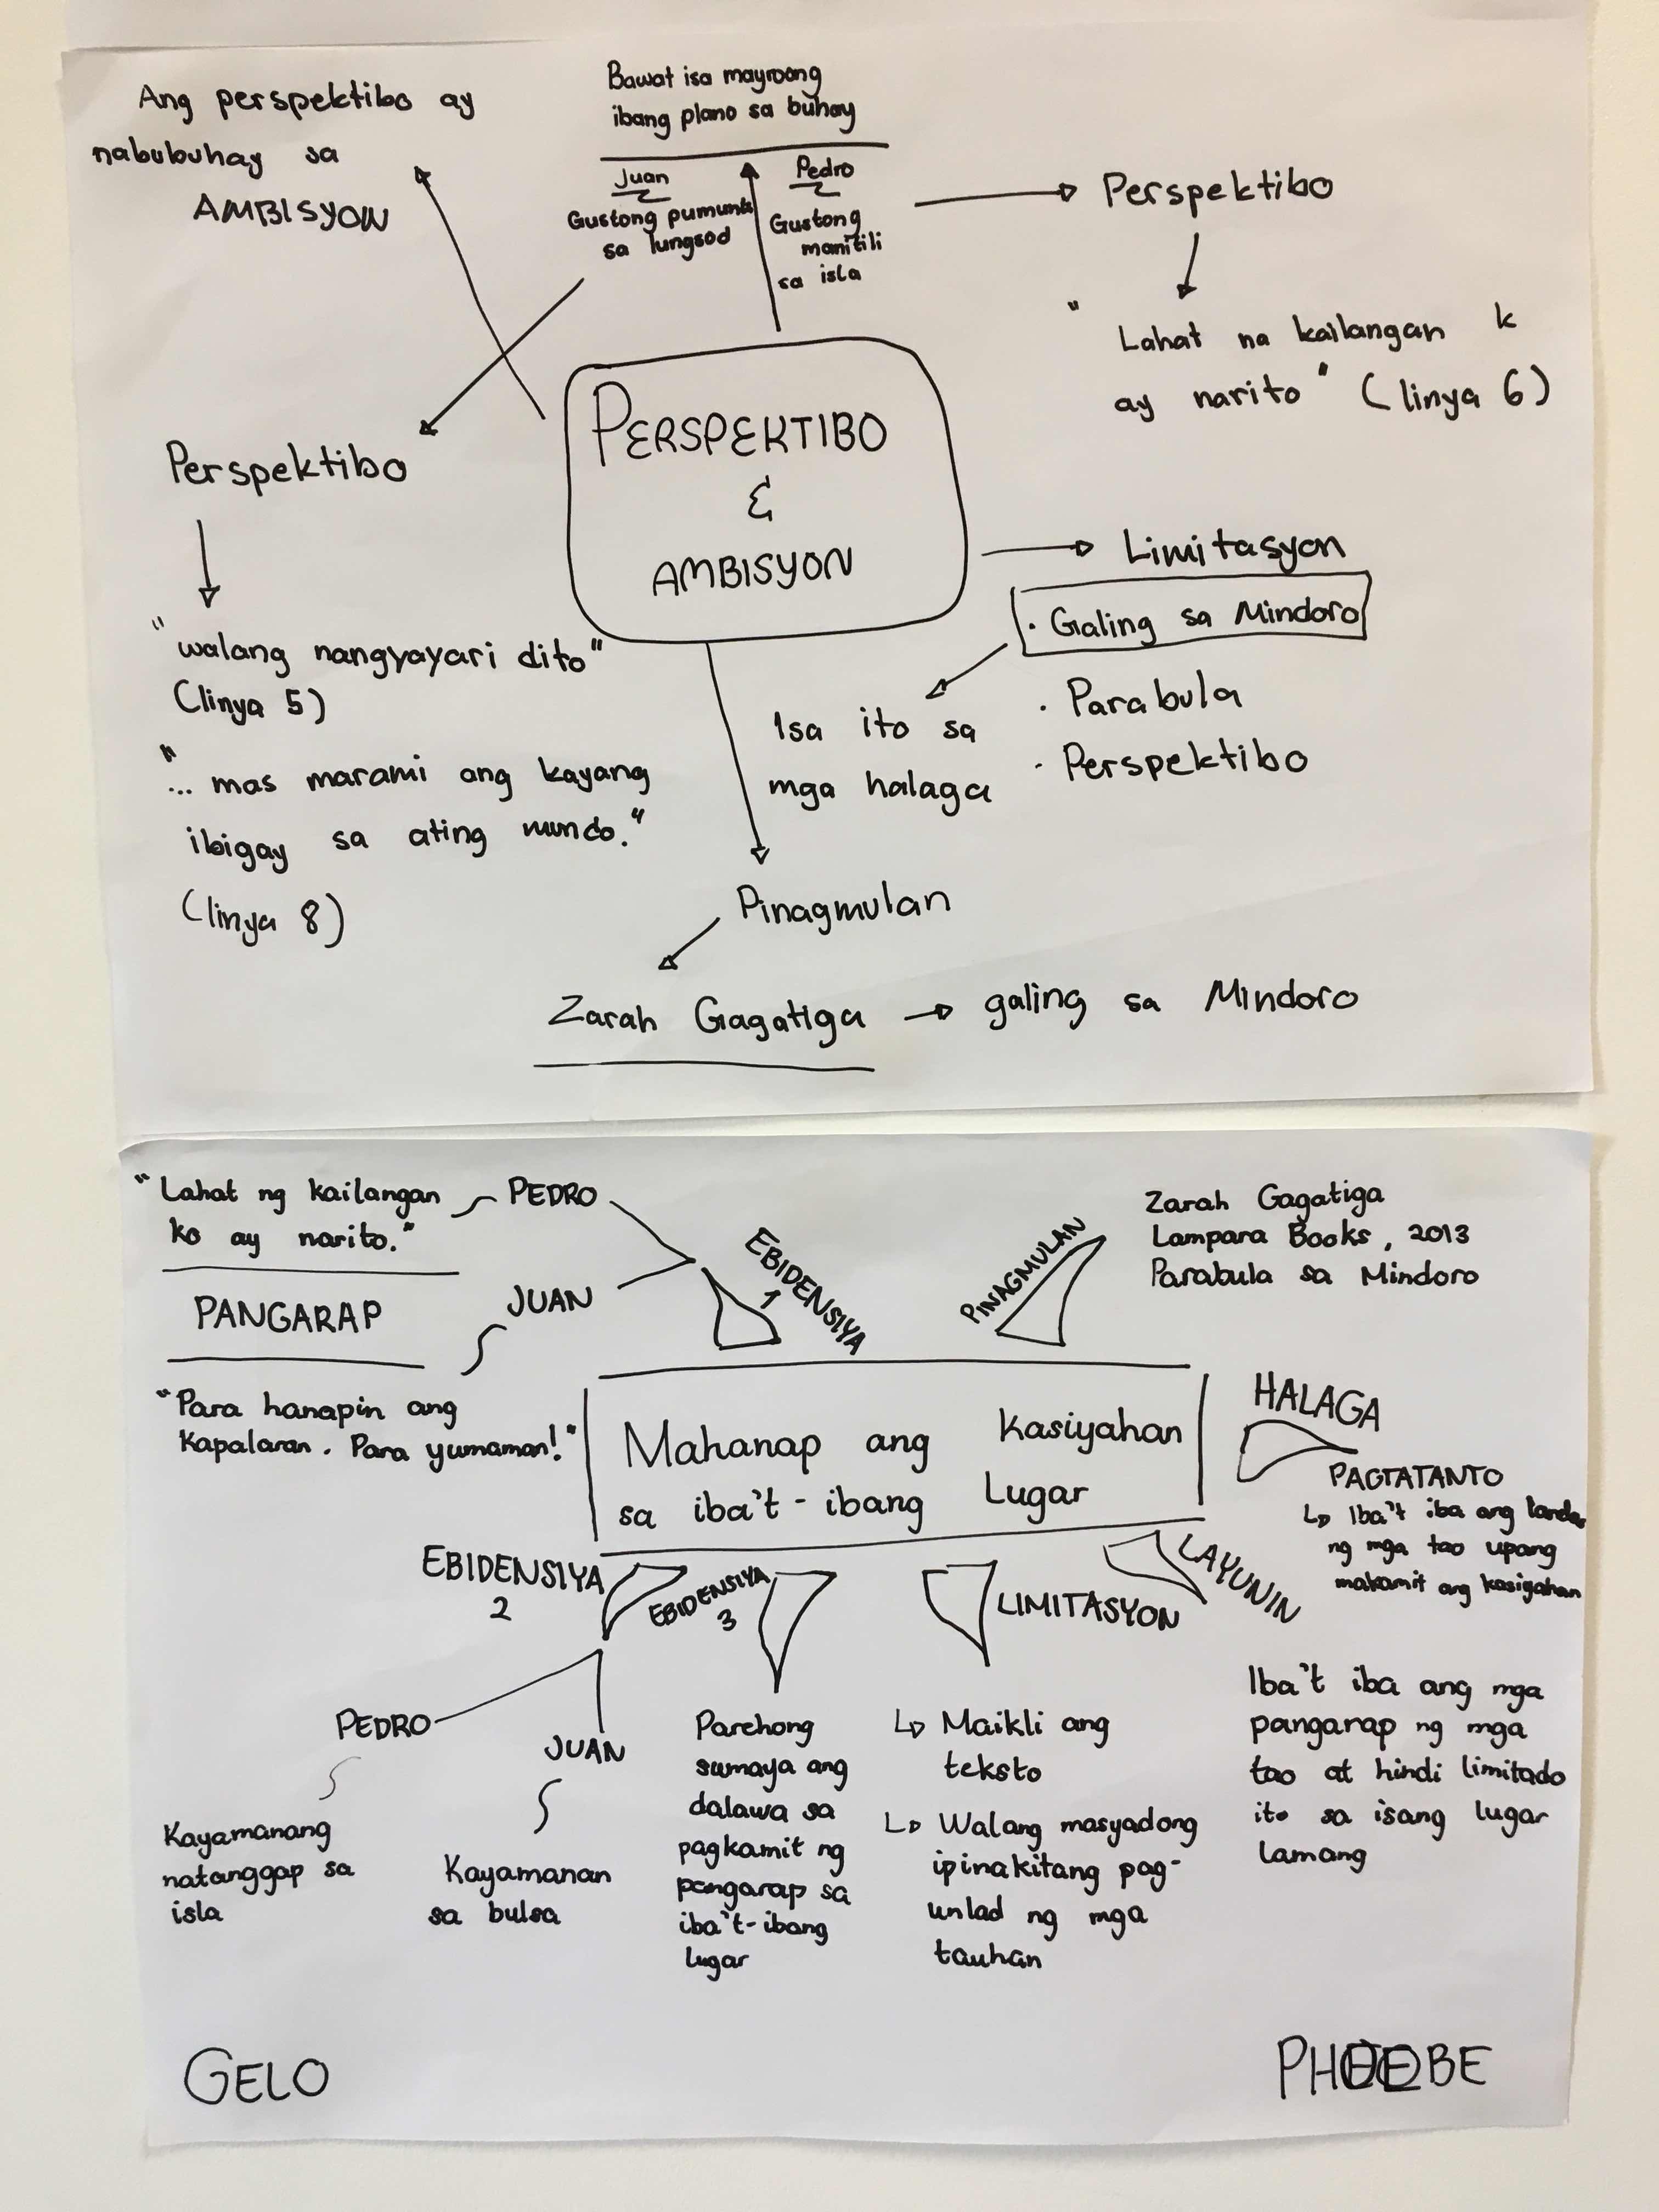 Ang perspektibo ay
nabubuhay sa
AMBISYON
Bawat isa mayroong
ibang plano sa buhay
Juan
Gustong pumunta
sa lungsod
Pedro
Gustong
manitili
sa isla
Perspektibo
"Lahat na kailangan k
ay narito" (linya 6)
Perspektibo
"walang nangyayari dito"
(linya 5)
"... mas marami ang kayang
ibigay sa ating mundo."
(linya 8)
PERSPEKTIBO
&
AMBISYON
Limitasyon
· Galing sa Mindoro
· Parabula
· Perspektibo
Isa ito sa
mga halaga
Pinagmulan
Zarah Gagatiga → galing sa Mindoro
"Lahat ng kailangan
ko ay narito."
PEDRO
PANGARAP
JUAN
"Para hanapin ang
kapalaran. Para yumaman!"
EBIDENSIYA
1
PINAGMULAN
Zarah Gagatiga
Lampara Books, 2013
Parabula sa Mindoro
Mahanap ang kasiyahan
sa iba't-ibang Lugar
HALAGA
PAGTATANTO
↳ Iba't iba ang
ng mga tao upang
makamit ang kasiyahan
EBIDENSIYA
2
PEDRO
Kayamanang
natanggap sa
isla
JUAN
Kayamanan
sa bulsa
EBIDENSIYA
3
Parehong
sumaya ang
dalawa sa
pagkamit ng
pangarap sa
iba't-ibang
lugar
LIMITASYON
↳ Maikli ang
teksto
↳ Walang masyadong
ipinakitang pag-
unlad ng mga
tauhan
LAYUNIN
Iba't iba ang mga
pangarap ng mga
tao at hindi limitado
ito sa isang lugar
lamang
GELO
PHOEBE